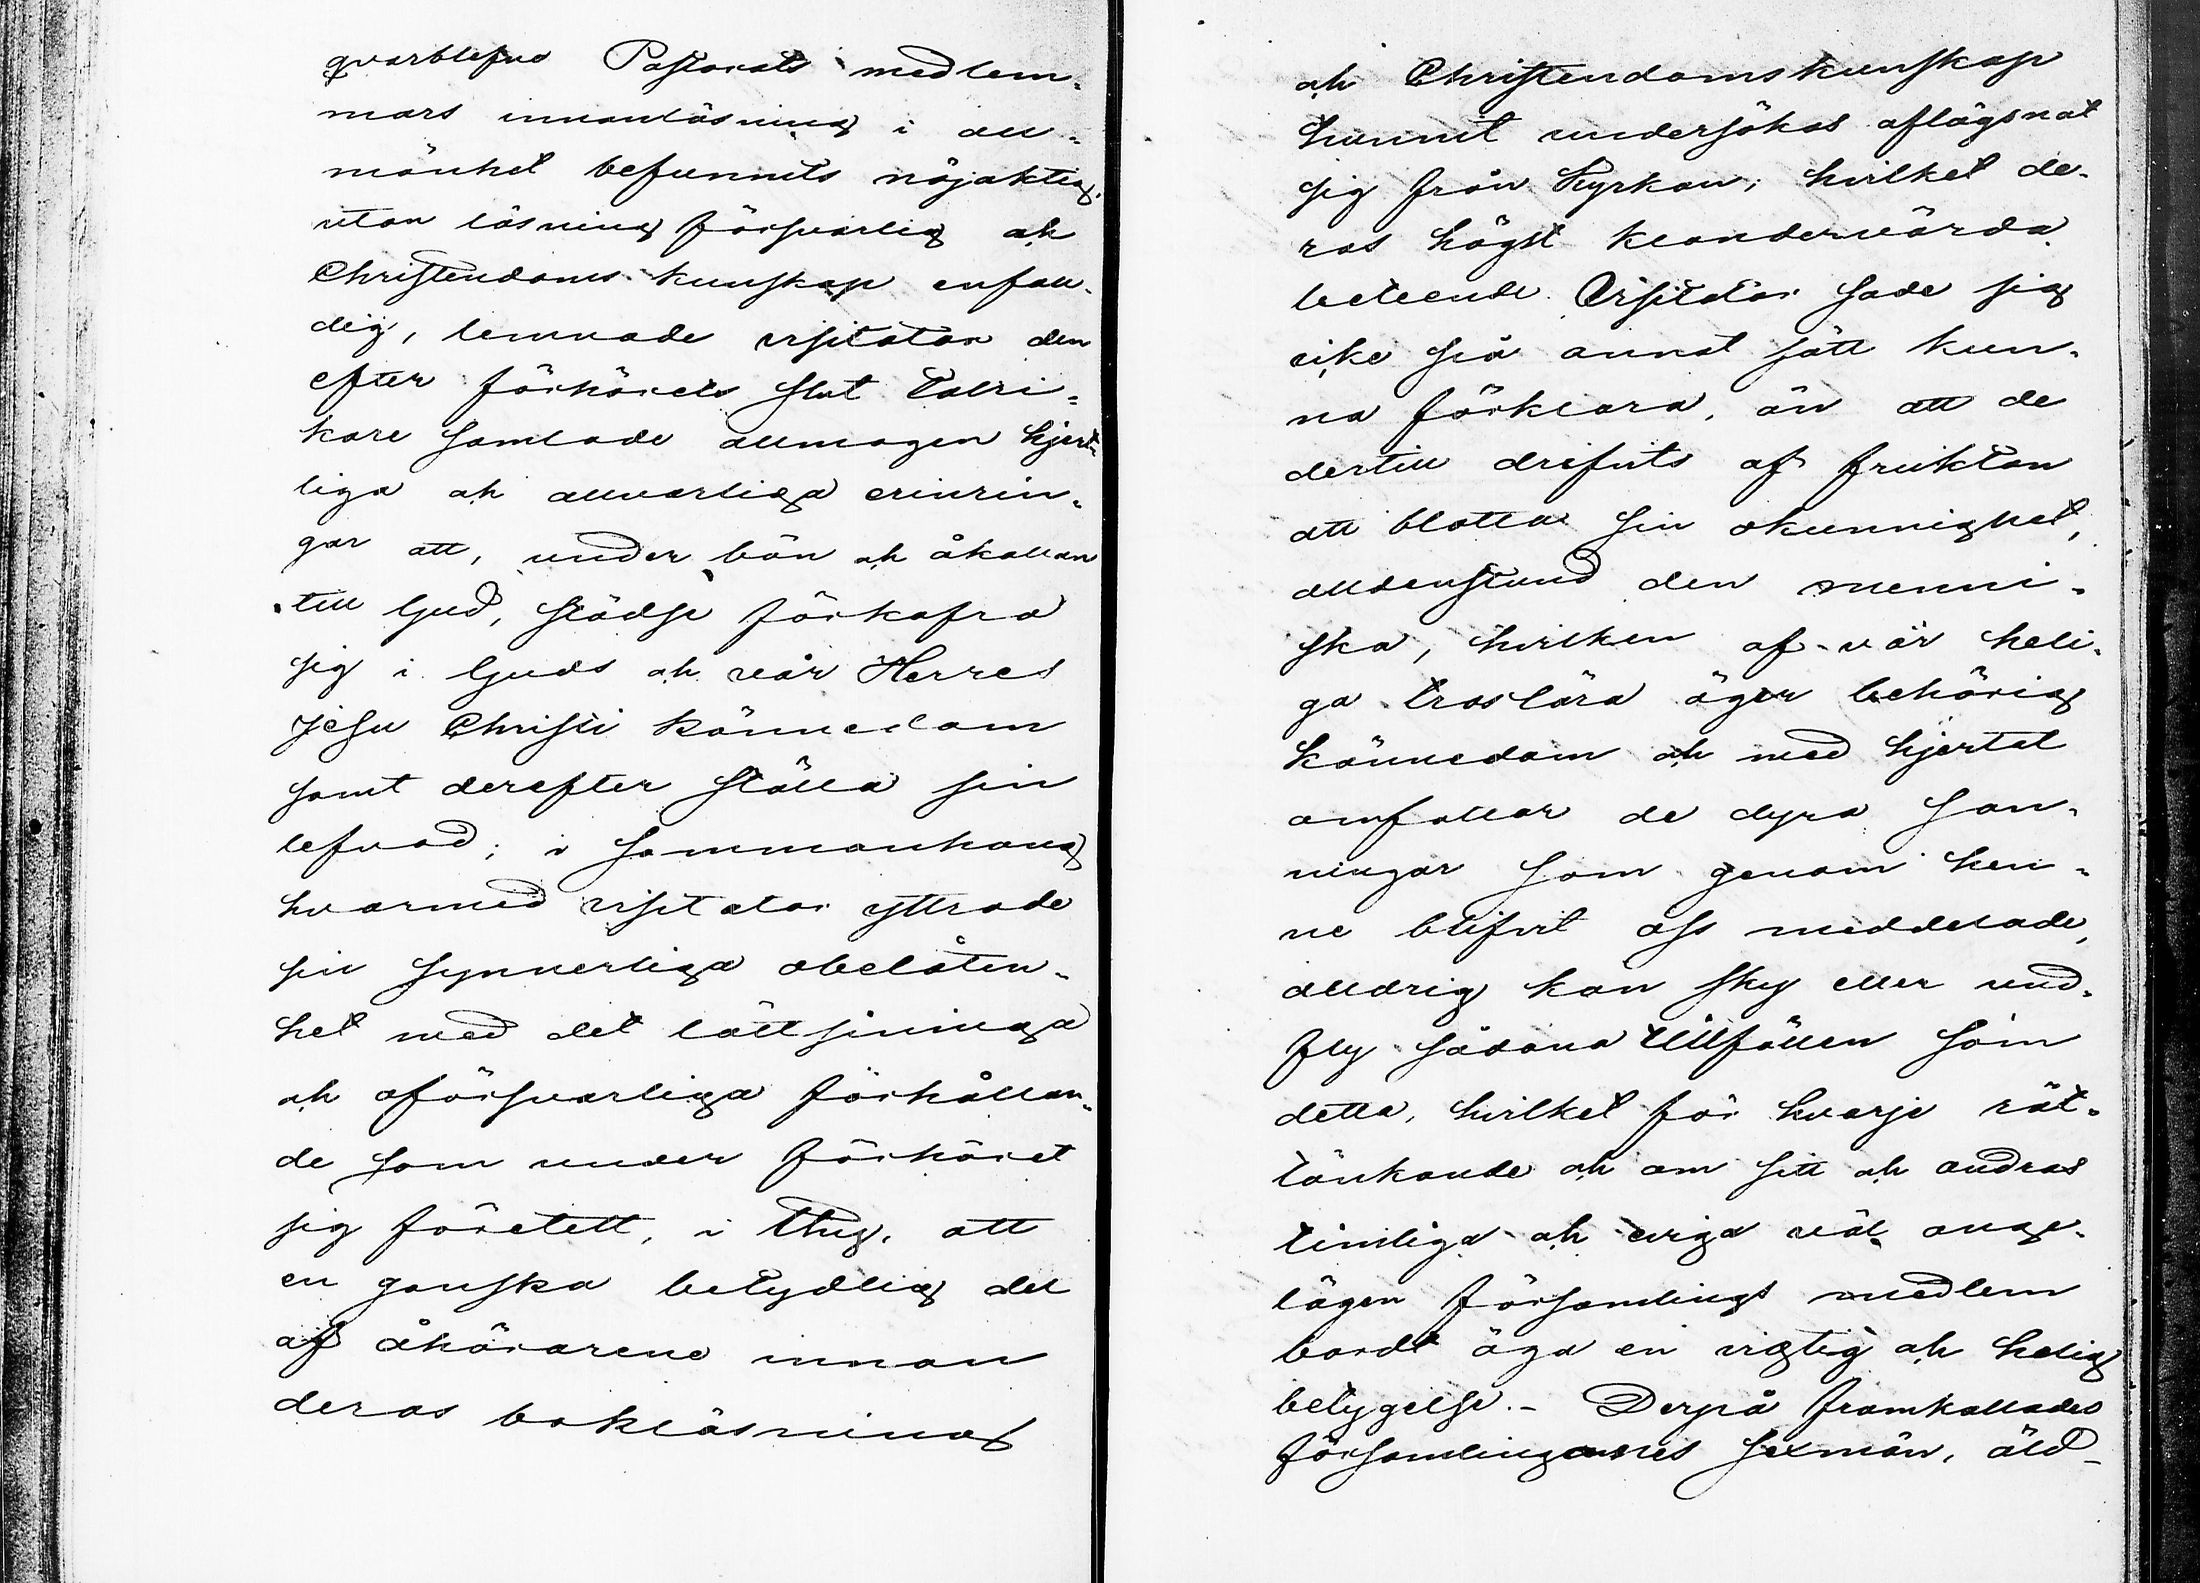 qvarblefne Pastorats medlem-
mars innanläsning i all-
mänhet befunnits nöjaktig,
utan läsning försvarlig och
Christendoms kunskap enfal-
dig, lemnade visitator den
efter förhörets slut talri-
kare samlade allmogen hjert-
liga och allvarliga erinrin-
gar att, under bön och åkallan
till Gud, städse förkofra
sig i Guds och vår Herres
Jesu Christi kännedom
samt derefter ställa sin
lefnad; i sammanhang
hvarmed visitator yttrade
sin synnerliga obelåten-
het med det lättsinniga
och oförsvarliga förhållan-
de som under förhöret
sig företett, i thy, att
en ganska betydlig del
af åhörarene innan
deras bokläsning
och Christendomskunskap
hunnit undersökas aflägsnat
sig från Kyrkan; hvilket de-
ras högst klandervärda
beteende Visitator sade sig
icke på annat sätt kun-
na förklara, än att de
dertill drifvits af fruktan
att blotta sin okunnighet,
alldenstund den menni-
ska, hvilken af vår heli-
ga troslära äger behörig
kännedom och med hjertat
omfattar de dyra san-
ningar som genom hen-
ne blifvit oss meddelade,
alldrig kan sky eller und-
fly sådana tillfällen som
detta, hvilket för hvarje rät-
tänkande och om sitt och andras
timliga och eviga väl ange-
lägen församlings medlem
bordt äga en vigtig och helig
betygelse. - Derpå framkallades
församlingarnes sexmän, äld-